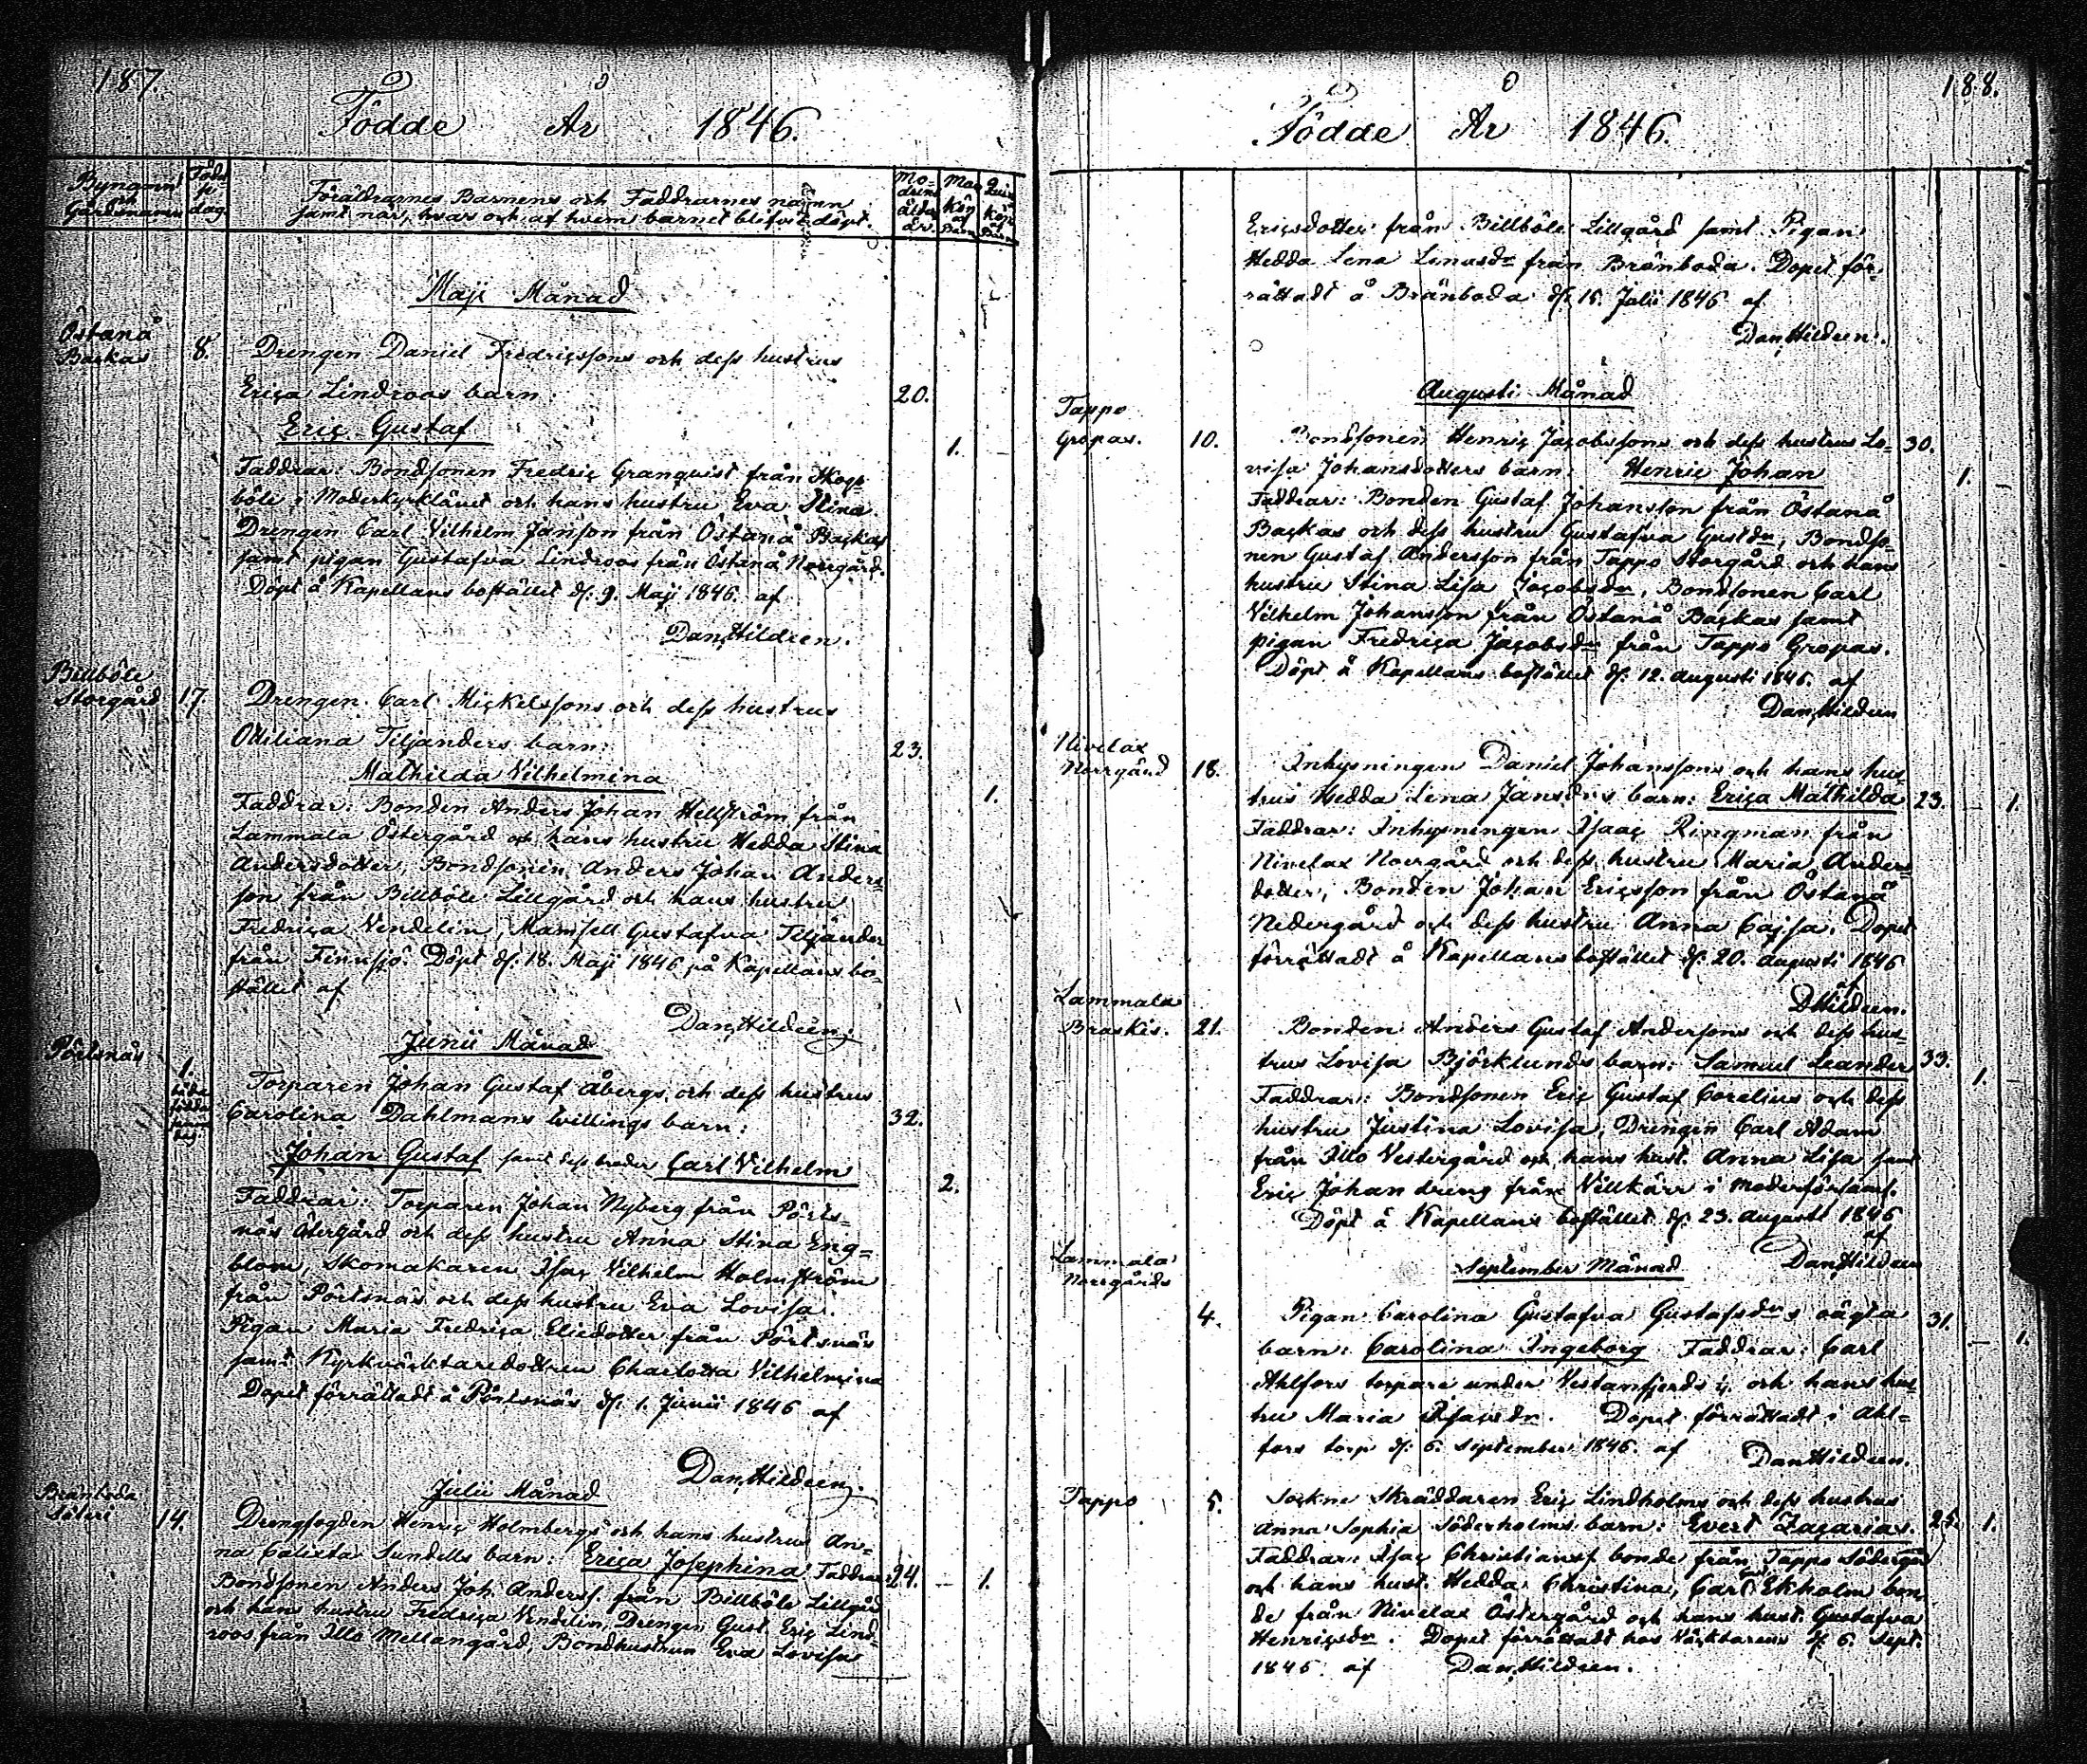 187.
Födde År 1846.
Bynamn och Gårdsnamn
Föde se dag.
Föräldrarnes Barnens och Faddrarnes namn
samt när, hvar och af hvem barnet blifvit döpt.
Mo- drens ålder år.
Man Kön af Barn
Quin Kön Barn
Maji Månad
Östanå
Backas 8. Drengen Daniel Fredricssons och dess hustrus
Erica Lindroos barn: 20.
Eric Gustaf 1.
Faddrar: Bondsonen Fredric Granquist från Skogs-
böle i Moderkyrkläned och hans hustru Eva Stina.
Drengen Carl Vilhelm Janson från Östanå Backas
samt pigan Gustafva Lindroos från Östanå Norrgård.
Döpt å Kapellans bostället d. 9. Maji 1846. af
Dan. Hildeen.
Billböle
Storgård 17. Drengen Carl Mickelssons och dess hustrus
Ottiliana Tiljanders barn: 23.
Mathilda Vilhelmina 1.
Faddrar: Bonden Anders Johan Hellström från
Lammala Östergård och hans hustru Hedda Stina
Andersdotter, Bondsonen Anders Johan Anders-
son från Billböle Lillgård och hans hustru
Fredrica Vendelin, Mamsell Gustafva Tiljander
från Finnsjö. Döpt d. 18. Maji 1846 på Kapellans bo-
stället af
Dan. Hildeen.
Junii Månad
Pörtsnäs
1. Torparen Johan Gustaf Åbergs och dess hustrus
Carolina Dahlmans tvillings barn: 32.
Johan Gustaf samt dess broder Carl Vilhelm 2.
Faddrar: Torparen Johan Nyberg från Pörts-
näs Östergård och dess hustru Anna Stina Eng-
blom, Skomakaren Isac Vilhelm Holmström
från Pörtsnäs och dess hustru Eva Lovisa.
Pigan Maria Fredrica Eliedotter från Pörtsnäs
samt Kyrkväcktaredottren Charlotta Vilhelmina
Dopet förrättadt å Pörtsnäs d. 1. Junii 1846 af
Dan. Hildeen.
Julii Månad
Bränboda
Säteri 14. Drengfogden Henric Holmbergs och hans hustrus An-
na Calixta Sundells barn: Erica Josephina Faddrar: 24. 1.
Bondsonen Anders Joh. Anderss. från Billböle Lillgård
och hans hustru Fredrica Vendelin, Drengen Gust. Eric Lind-
roos från Illo Mellangård, Bondhustrun Eva Lovisa
188.
Födde År 1846.
Ericsdotter från Billböle Lillgård samt Pigan
Hedda Lena Linusdr från Bränboda. Dopet för-
rättadt å Bränboda d. 15. Julii 1846 af
Dan. Hildeen.
Augusti Månad
Tappo
Gropas. 10. Bondsonen Henric Jacobssons och dess hustrus Lo- 30.
visa Johansdotters barn: Henric Johan 1.
Faddrar: Bonden Gustaf Johansson från Östanå
Backas och dess hustru Gustafva Gustdr, Bondso-
nen Gustaf Andersson från Tappo Storgård och hans
hustru Stina Lisa Jacobsdr, Bondsonen Carl
Vilhelm Johansson från Östanå Backas samt
pigan Fredrica Jacobsdr från Tappo Gropas.
Döpt å Kapellans bostället d. 12. Augusti 1846. af
Dan. Hildeen
Nivelax
Norrgård 18. Inhysningen Daniel Johanssons och hans hus-
trus Hedda Lena Jansdrs barn: Erica Mathilda 23. 1.
Faddrar: Inhysningen Isaac Ringman från
Nivelax Norrgård och dess hustru Maria Anders-
dotter, Bonden Johan Ericsson från Östanå
Nedergård och dess hustru Anna Cajsa. Dopet
förrättadt å Kapellans bostället d. 20. Augusti 1846
af
D Hildeen.
Lammala
Braskis. 21. Bonden Anders Gustaf Andersons och dess hus-
trus Lovisa Björklunds barn: Samuel Leander 33. 1.
Faddrar: Bondsonen Eric Gustaf Corelius och dess
hustru Justina Lovisa, Drengen Carl Adam
från Illo Vestergård och hans hust. Anna Lisa samt
Eric Johan dreng från Villkärr i moderförsaml.
Döpt å Kapellans bostället d. 23. Augusti 1846
af
Dan. Hildeen
September Månad
Lammala
Norrgårds
4. Pigan Carolina Gustafva Gustafsdrs oägta 31.
barn: Carolina Ingeborg Faddrar: Carl 1.
Ahlfors torpare under Vestanfjerds g. och hans hus-
tru Maria Isacsdr. Dopet förrättadt i Ahl-
fors torp d. 6. September 1846. af
Dan. Hildeen.
Tappo 5. Sockne Skräddaren Eric Lindholms och dess hustrus
Anna Sophia Söderholms barn: Evert Zacarias. 25. 1.
Faddrar: Isac Christianss. bonde från Tappo Södergår
och hans hust. Hedda Christina, Carl Ekholm bon-
de från Nivelax Östergård och hans hust. Gustafva
Henricsdr. Dopet förrättadt hos Väcktarens d. 6. Sept.
1846. af Dan. Hildeen.